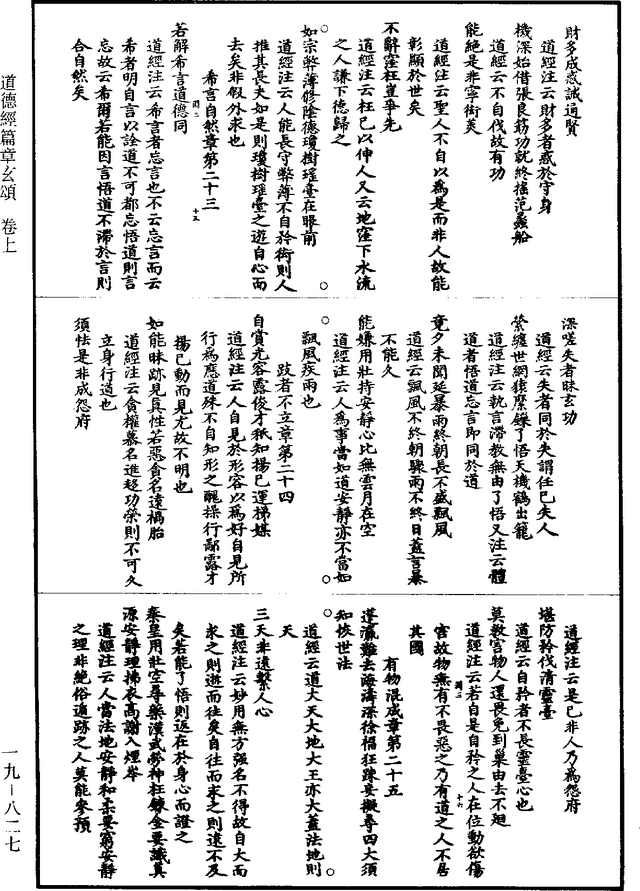 財多成惑誠通賢
道經注云財多者惑於守身
機深始借張良筯功就終搖范蠡船
道經注云不自伐故有功
能絕是非寧衒美
道經注云聖人不自以為是而非人故能
彰顯於世矣
不辭窪枉豈爭先
道經注云枉己以伸人又云地窪下水流
之人謙下德歸之
如宗弊薄修陰德瓊樹瑤臺在眼前
道經注云人能長守弊薄不自矜衒則人
推其長夫如是則瓊樹瑤臺之遊自心而
去矣非假外求也
希言自然章第二十三
若解希言道德同
道經注云希言者忘言也不云忘言而云
希者明自言以詮道不可都忘悟道則言
忘故云希爾若能因言悟道不滯於言則
合自然矣
深嗟失者昧玄功
道經云失者同於失謂任己失人
縈纏世網猿縻鏁了悟天機鶴出籠
道經注云執言滯教無由了悟又注云體
道者悟道忘言即同於道
竟夕未聞延暴雨終朝長不盛飄風
道經云飄風不終朝驟雨不終日蓋言暴
不能久
能嫌用壯持安靜心比無雲月在空
道經注云人為事當如道安靜亦不當如
飄風疾雨也
跂者不立章第二十四
自賞光容露俊才秖知揚己運梯媒
道經注云人自見於形容以為好自見所
行為應道殊不自知形之醜操行鄙露才
揚己動而見尤故不明也
如能昧跡見真性若惡貪名遠禍胎
道經注云貪權慕名進趍功榮則不可久
立身行道也
須怯是非成怨府
道經注云是己非人乃為怨府
堪防矜伐清靈臺
道經云自矜者不長靈臺心也
莫教害物人還畏免到巢由去不迴
道經注云若自是自矜之人在位動欲傷
害故物無有不畏惡之乃有道之人不居
其國
有物混成章第二十五
蓬瀛難去海濤深徐福狂踈妄擬尋四大須
知恢世法
道經云道大天大地大王亦大蓋法地則
天
三天非遠繫人心
道經注云妙用無方强名不得故自大而
求之則逝而往矣自往而求之則遠不及
矣若能了悟則返在於身心而證之
秦皇用壯空尋藥漢武勞神枉鍊金要識真
源安靜理拂衣高謝入煙岑
道經注云人當法地安靜和柔要窮安靜
之理非絕俗遁跡之人莫能參預
道德經篇章玄頌 卷上
一九－八二七